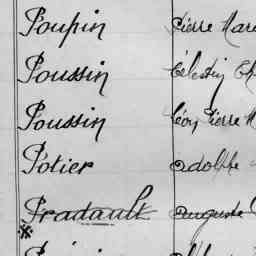 Poupin Pierre Mar
Poussin Célestin Ch
Poussin Léon Pierre M
Potier Adolphe
Pradault Auguste